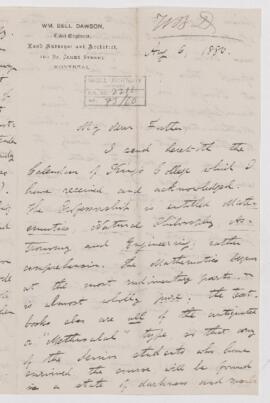 WM. BELL DAWSON,
Civil Engineer,
Land Surveyor and Architect,
ST. JAMES STREET,
MONTREAL.
WBD
Aug 6, 1880.
My dear Father
I send herewith the
Calendar of King's College which I
have received and acknowledged.
The Professorship is entitled Math-
ematics, Natural Philosophy, As-
tronomy and Engineering, rather
comprehensive. The Mathematics begins
at the most rudimentary parts &
is almost wholly pure; the text-
books also are all of the antiquated
"Methuselah" type so that any
of the Senior students who have
survived the course will be found
in a state of darkness and